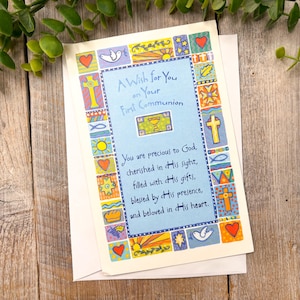 A Wish for You
on Your
First Communion
You are precious to God,
cherished in His sight,
filled with His gifts,
blessed by His presence,
and beloved in His heart.